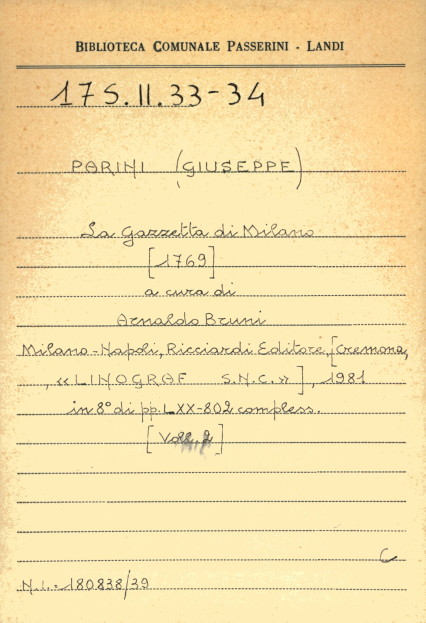 BIBLIOTECA COMUNALE PASSERINI - LANDI
175.II.33-34
PARINI (GIUSEPPE)
La Gazzetta di Milano
[1769]
a cura di
Arnaldo Bruni
Milano-Napoli, Ricciardi Editore, [Cremona,
, «LINOGRAF S.N.C.»], 1981
in 8° di pp. LXX-802 compless.
[Voll. 2]
C
N.i. = 180838/39